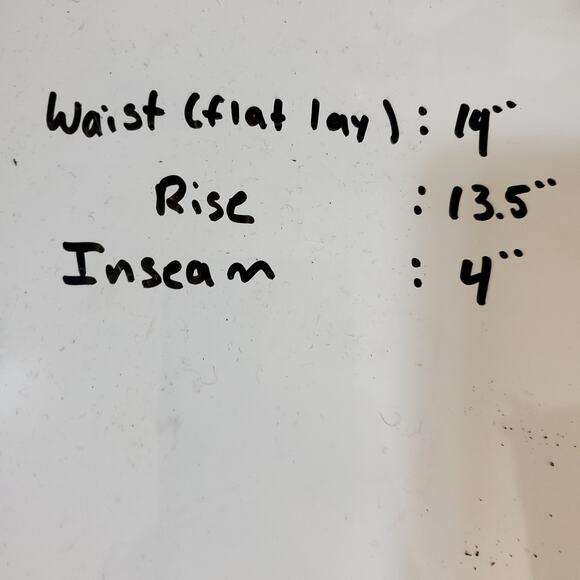 Waist (flat lay) : 19"
Rise : 13.5"
Inseam : 4"